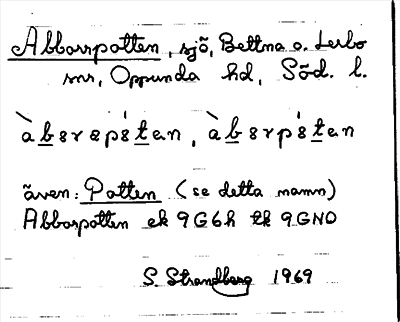 Abborrpotten, sjö, Bettna o. Lerbo
snr, Oppunda hd, Söd. l.
àbɜrəpɜ́tən, àbɜrpɜ́tən
även: Potten (se detta namn)
Abborrpotten ek 9G6h tk 9GNO
S. Strandberg 1969